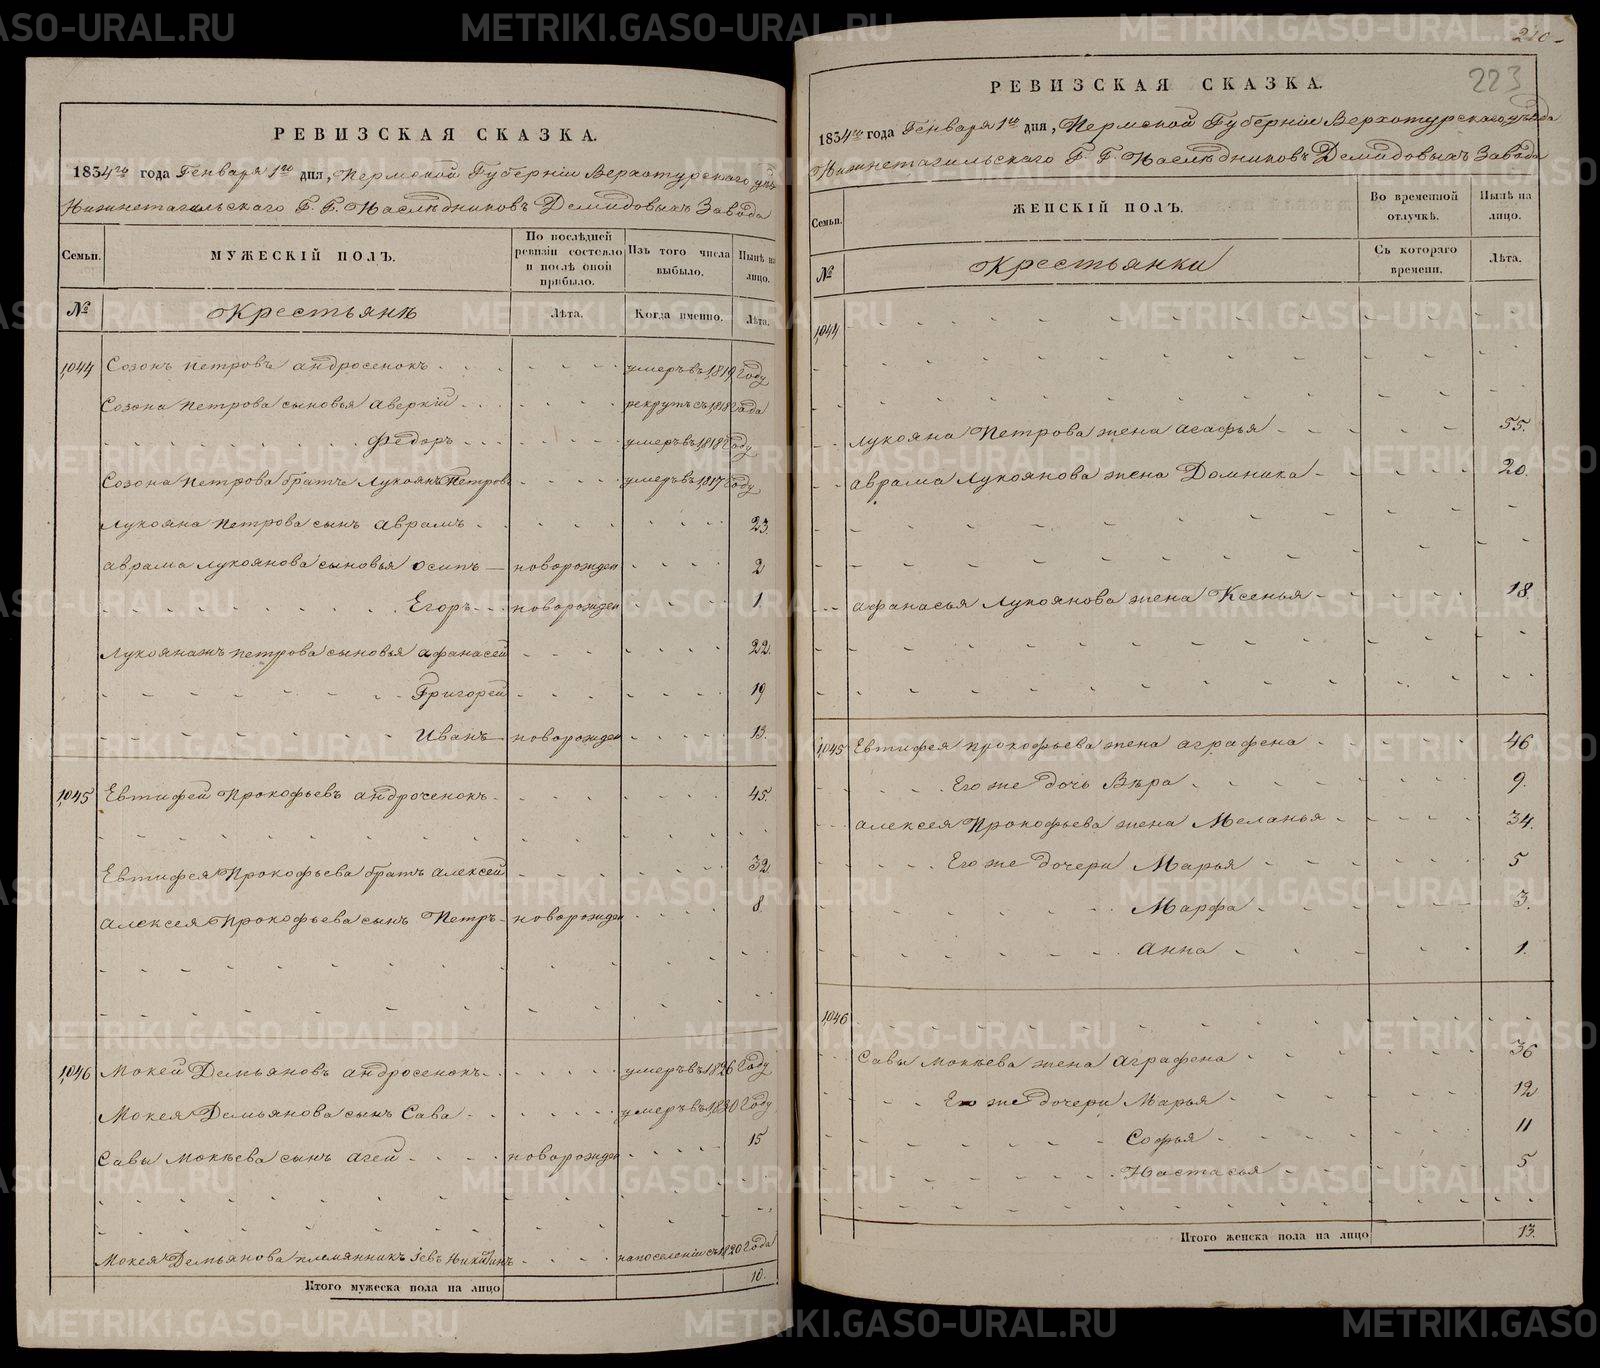 РЕВИЗСКАЯ СКАЗКА.
1834го года Генваря 1го дня, Пермской Губерніи Верхотурскаго уѣз
Нижнетагильскаго Г. Г. Наслѣдниковъ Демидовыхъ Завода
Семьи.
МУЖЕСКІЙ ПОЛЪ.
По послѣдней ревизіи состояло и послѣ оной прибыло.
Изъ того числа выбыло.
Нынѣ на лицо.
№
Крестьянъ
Лѣта.
Когда именно.
Лѣта.
1044 Созонъ Петровъ Андросенокъ умеръ въ 1819 году
Созона Петрова сыновья Аверкій рекрутъ съ 1818 года
Федоръ умеръ въ 1818 году
Созона Петрова братъ Лукоянъ Петровъ умеръ въ 1817 году
Лукояна Петрова сынъ Аврамъ 23
Аврама Лукоянова сыновья Осипъ новорожден 2
Егоръ новорожден 1
Петрова сыновья Афанасей 22
Григорей 19
Иванъ новорожден 13.
1045 Евтифей Прокофьевъ Андроченокъ 45.
Евтифея Прокофьева братъ Алексей 32
Алексея Прокофьева сынъ Петръ новорожден 8.
1046 Мокей Демьяновъ Андросенокъ умеръ въ 1826 году
Мокея Демьянова сынъ Сава умеръ въ 1830 году
Савы Мокѣева сынъ Агей новорожден 15
Мокея Демьянова племянникъ Никитинъ на поселеніи съ 1820 года
Итого мужеска пола на лицо 10.
210
223
РЕВИЗСКАЯ СКАЗКА.
1834го года Генваря 1го дня, Пермской Губерніи Верхотурскаго уѣзда
Нижнетагильскаго Г. Г. Наслѣдниковъ Демидовыхъ Завода
Семьи.
ЖЕНСКІЙ ПОЛЪ.
Во временной отлучкѣ.
Нынѣ на лицо.
№
Крестьянки
Съ котораго времени.
Лѣта.
1044
Лукояна Петрова жена Агафья 55.
Аврама Лукоянова жена Домника 20.
Афанасья Лукоянова жена Ксенья 18.
1045 Евтифея Прокофьева жена Аграфена 46
Его же дочь Вѣра 9.
Алексея Прокофьева жена Меланья 34.
Его же дочери Марья 5
Марфа 3.
Анна 1.
1046
Савы Мокѣева жена Аграфена 36
Его же дочери Марья 12
Софья 11
Настасья 5
Итого женска пола на лицо 13.
METRIKI.GASO-URAL.RU